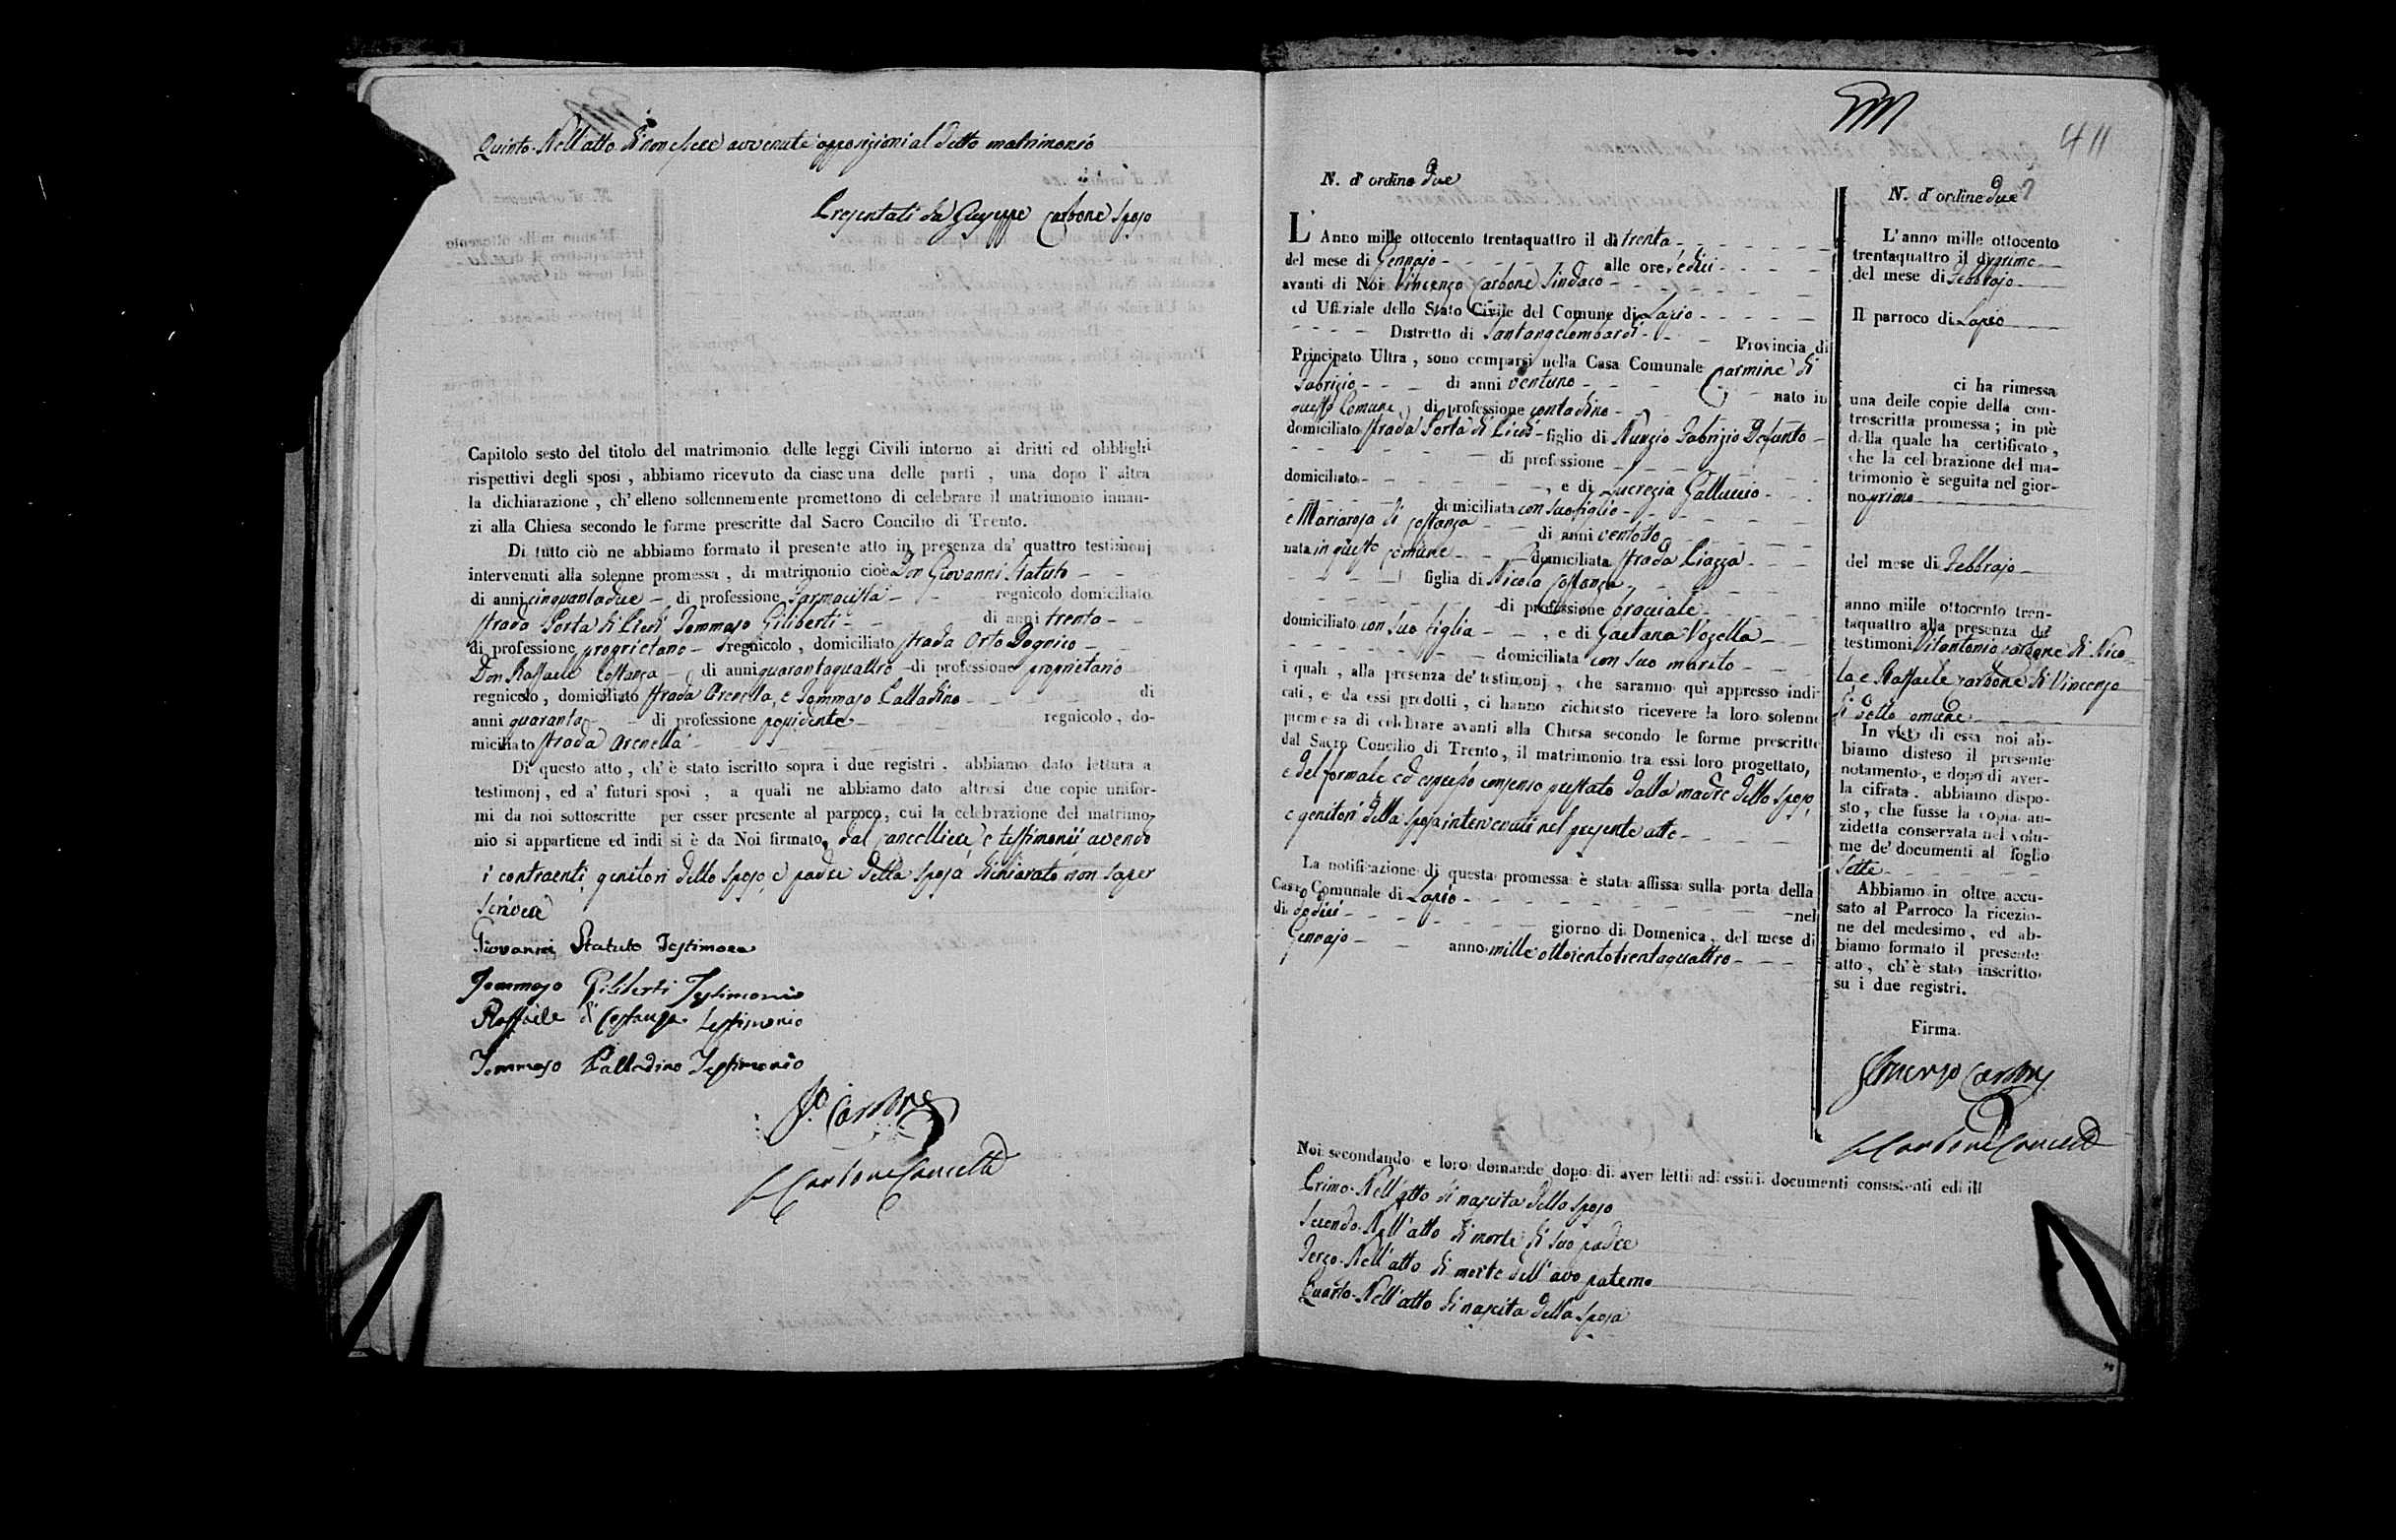 Quinto. Nell'atto di non esser avvenute opposizioni al detto matrimonio
Presentati da Giuseppe Carbone sposo
Capitolo sesto del titolo del matrimonio delle leggi Civili intorno ai dritti ed obblighi
rispettivi degli sposi, abbiamo ricevuto da ciascuna delle parti, una dopo l'altra
la dichiarazione, ch'elleno sollennemente promettono di celebrare il matrimonio innan-
zi alla Chiesa secondo le forme prescritte dal Sacro Concilio di Trento.
Di tutto ciò ne abbiamo formato il presente atto in presenza da' quattro testimonj
intervenuti alla solenne promessa, di matrimonio cioè Don Giovanni Statuto
di anni cinquantadue di professione Farmacista regnicolo domiciliato
strada Porta di Piedi Tommaso Giliberti di anni trenta
di professione proprietario regnicolo, domiciliato strada Orto
Don Raffaele Costanza di anni quarantaquattro di professione proprietario
regnicolo, domiciliato strada Arenella, e Tommaso Palladino di
anni quaranta di professione possidente regnicolo, do-
miciliato strada Arenella
Di questo atto, ch'è stato iscritto sopra i due registri, abbiamo dato lettura a
testimonj, ed a' futuri sposi, a quali ne abbiamo dato altresi due copie unifor-
mi da noi sottoscritte per esser presente al parroco, cui la celebrazione del matrimo-
nio si appartiene ed indi si è da Noi firmato, dal Cancelliere, e testimonii avendo
i contraenti, genitori dello sposo, e padre della sposa dichiarato non saper
scrivere
Giovanni Statuto Testimone
Tommaso Giliberti Testimonio
Raffaele di Costanza testimonio
Tommaso Palladino Testimonio
Carbone
Carbone Cancell
411
N. d'ordine due
L'Anno mille ottocento trentaquattro il dì trenta
del mese di Gennajo alle ore sedici
avanti di Noi Vincenzo Carbone Sindaco
ed Uffiziale dello Stato Civile del Comune di Lapio
Distretto di Santangelombardi Provincia di
Principato Ultra, sono comparsi nella Casa Comunale Carmine di
Fabrizio di anni ventuno nato in
questo Comune di professione contadino
domiciliato strada Porta di Piedi figlio di Nunzio Fabrizio Defunto
di professione
domiciliato , e di Lucrezia Galluccio
domiciliata con suo figlio
e Mariarosa di Costanza di anni ventotto
nata in questo Comune domiciliata strada Piazza
figlia di Nicola Costanza
di professione braciale
domiciliato con sua figlia , e di Gaetana Vozella
domiciliata con suo marito
i quali, alla presenza de' testimonj, che saranno quì appresso indi-
cati, e da essi prodotti, ci hanno richiesto ricevere la loro solenne
promessa di celebrare avanti alla Chiesa secondo le forme prescritte
dal Sacro Concilio di Trento, il matrimonio tra essi loro progettato,
e del formale ed espresso consenso prestato dalla madre dello sposo,
e genitori della sposa intervenuti nel presente atto
La notificazione di questa promessa è stata affissa sulla porta della
Casa Comunale di Lapio nel
dì dodici giorno di Domenica, del mese di
Gennajo anno mille ottocentotrentaquattro
Noi secondando e loro domande dopo di aver letti ad essi i documenti consistenti ed il
Primo. Nell'atto di nascita dello sposo
Secondo. Nell'atto di morte di suo padre
Terzo. Nell'atto di morte dell'avo paterno
Quarto. Nell'atto di nascita della sposa
N. d'ordine due
L'anno mille ottocento
trentaquattro il dì primo
del mese di Febbrajo
Il parroco di Lapio
ci ha rimessa
una delle copie della con-
troscritta promessa; in piè
della quale ha certificato,
che la celebrazione del ma-
trimonio è seguita nel gior-
no primo
del mese di Febbrajo
anno mille ottocento tren-
taquattro alla presenza de'
testimoni Vitantonio Carbone di Nico-
la e Raffaele Carbone di Vincenzo
di detto Comune
In vista di essa noi ab-
biamo disteso il presente
notamento, e dopo di aver-
la cifrata, abbiamo dispo-
sto, che fusse la copia an-
zidetta conservata nel volu-
me de' documenti al foglio
Sette
Abbiamo in oltre accu-
sato al Parroco la ricezio-
ne del medesimo, ed ab-
biamo formato il presente
atto, ch'è stato inscritto
su i due registri.
Firma.
Vincenzo Carbone
Carbone Cancell